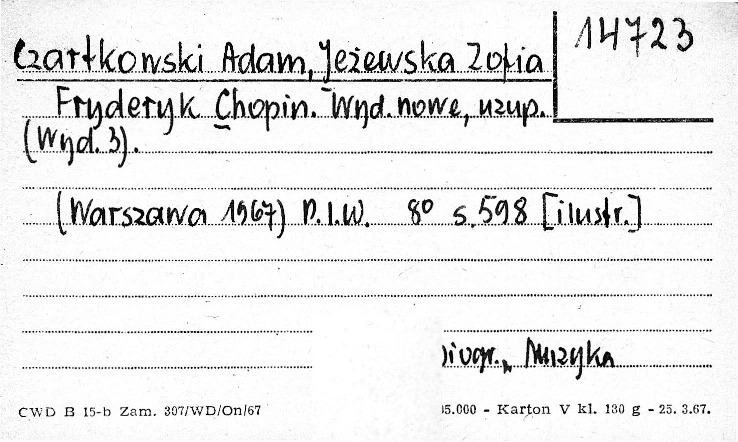 14723
Czartkowski Adam, Jeżewska Zofia
Fryderyk Chopin. Wyd. nowe, uzup.
(Wyd. 3).
(Warszawa 1967) P.I.W. 8° s. 598 [ilustr.]
Muzyka
CWD B 15-b Zam. 397/WD/On/67
5.000 - Karton V kl. 130 g - 25. 3.67.